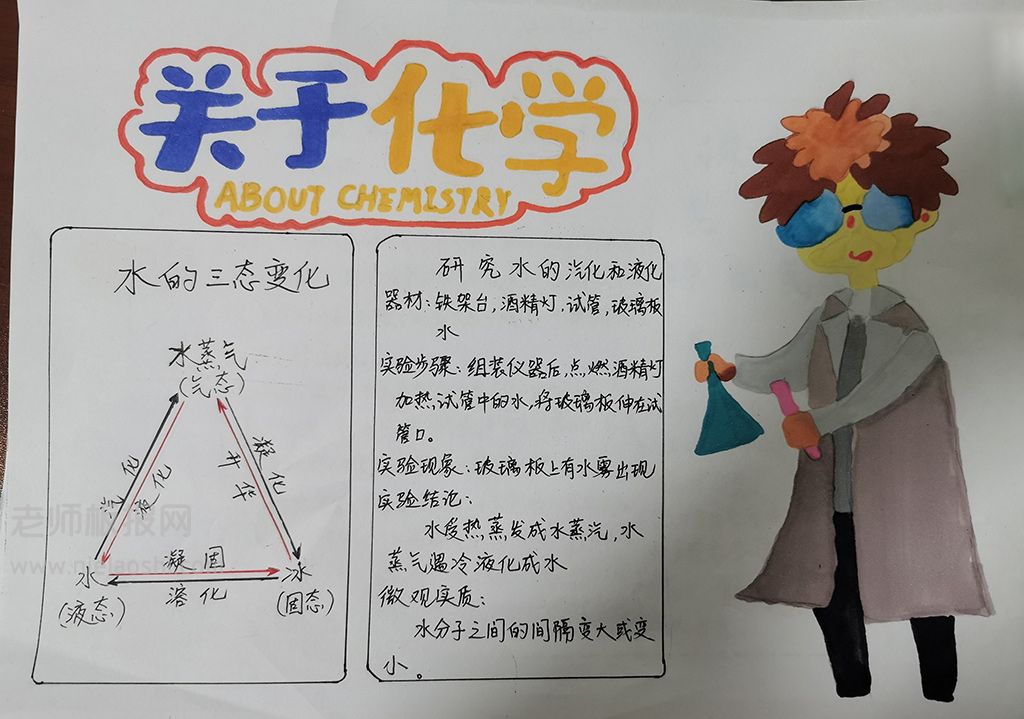 关于化学
ABOUT CHEMISTRY
水的三态变化
水蒸气
(气态)
汽化
液化
凝化
升华
水
(液态)
凝固
溶化
冰
(固态)
研究水的汽化和液化
器材:铁架台,酒精灯,试管,玻璃板
水
实验步骤:组装仪器后,点燃酒精灯
加热,试管中的水,将玻璃板伸在试
管口。
实验现象:玻璃板上有水雾出现
实验结论:
水受热蒸发成水蒸汽,水
蒸气遇冷液化成水
微观实质:
水分子之间的间隔变大或变
小。
老师板报网